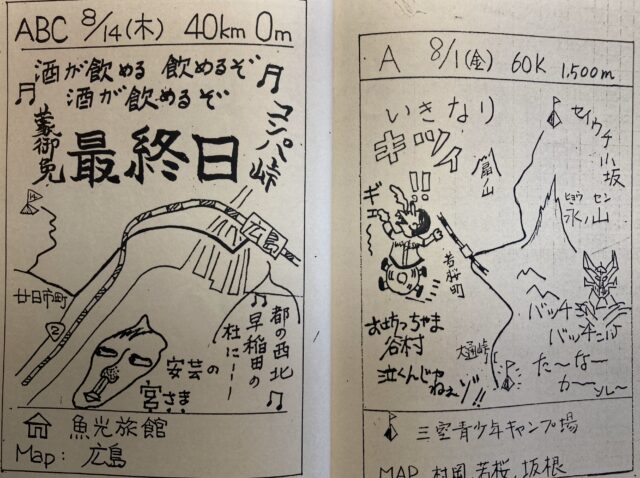 ABC 8/14(木) 40km 0m
酒が飲める 飲めるぞ
酒が飲めるぞ
コンパ峠
最終日
広島
廿日市町
2
安芸の
宮さま
都の西北
早稲田の
杜にーー
魚光旅館
Map: 広島
A 8/1(金) 60K 1,500m
いきなり
キツィ
セイウチ小坂
氷ノ山
ヒョウ セン
!!
ギェ
若桜町
おぼっちゃま
谷村
泣くんじゃ
ねぇゾ!!
バッチョ
た〜な〜
カ〜
三室青少年キャンプ場
MAP 村岡、若桜、坂根